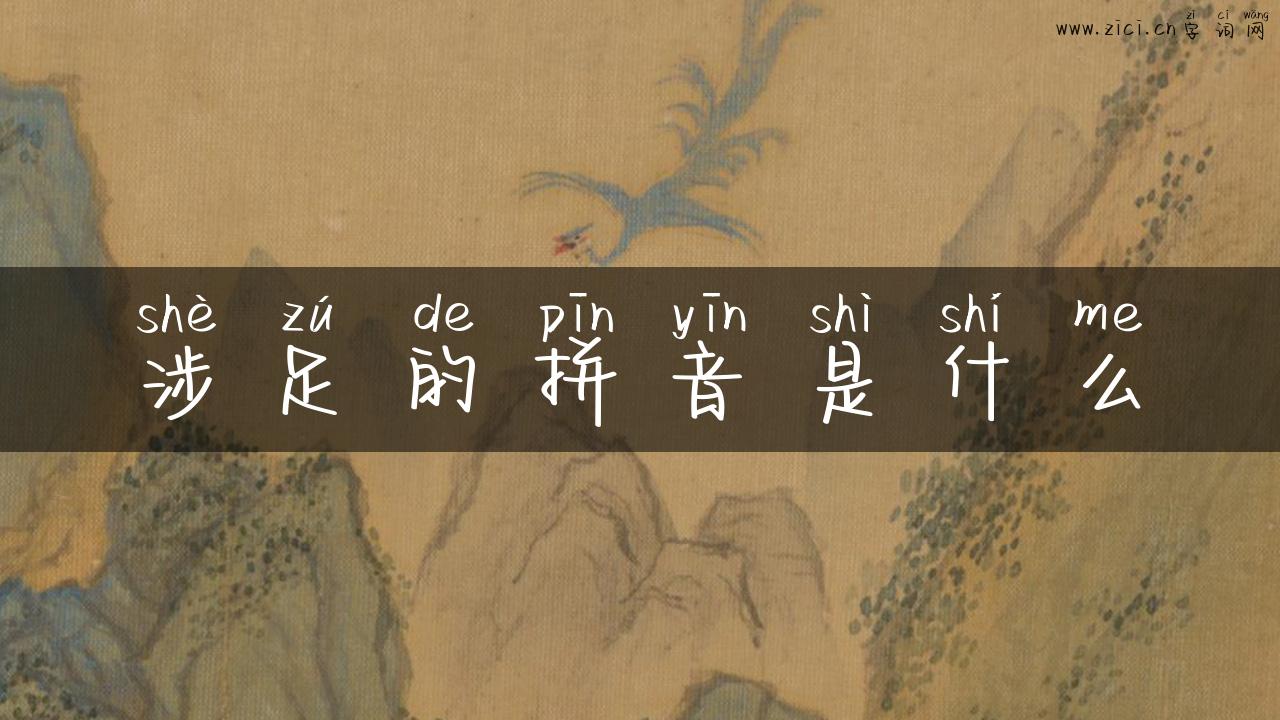 zì cí wǎng
www.zici.cn字词网
shè zú de pīn yīn shì shí me
涉足的拼音是什么